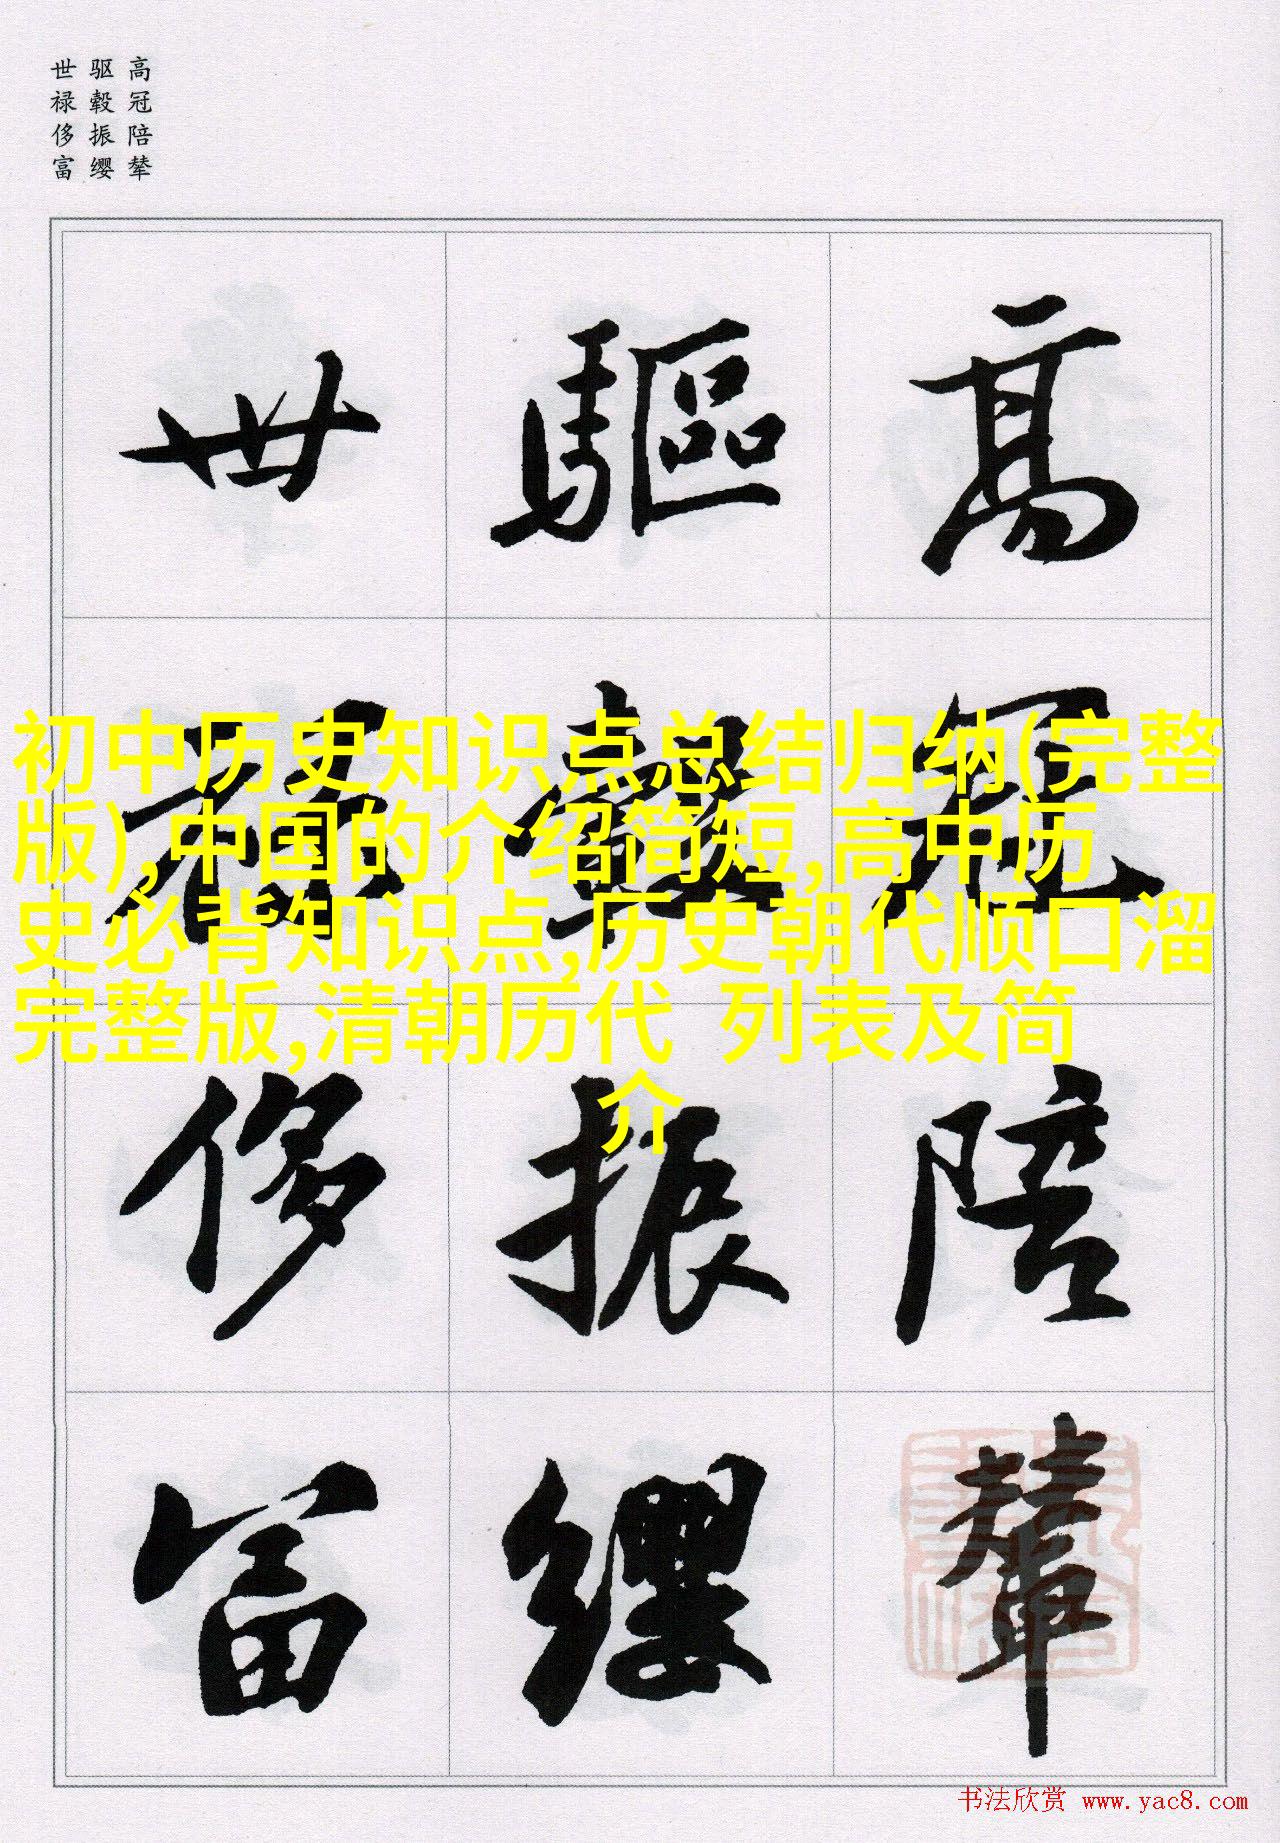 高冠陪辇
驱毂振缨
世禄侈富
高冠陪輦
驅轂振纓
世祿侈富
初中历史知识点总结归纳(完整
版),中国的介绍简短,高中历
史必背知识点,历史朝代顺口溜
完整版,清朝历代 列表及简
介
书法欣赏 www.yac8.com